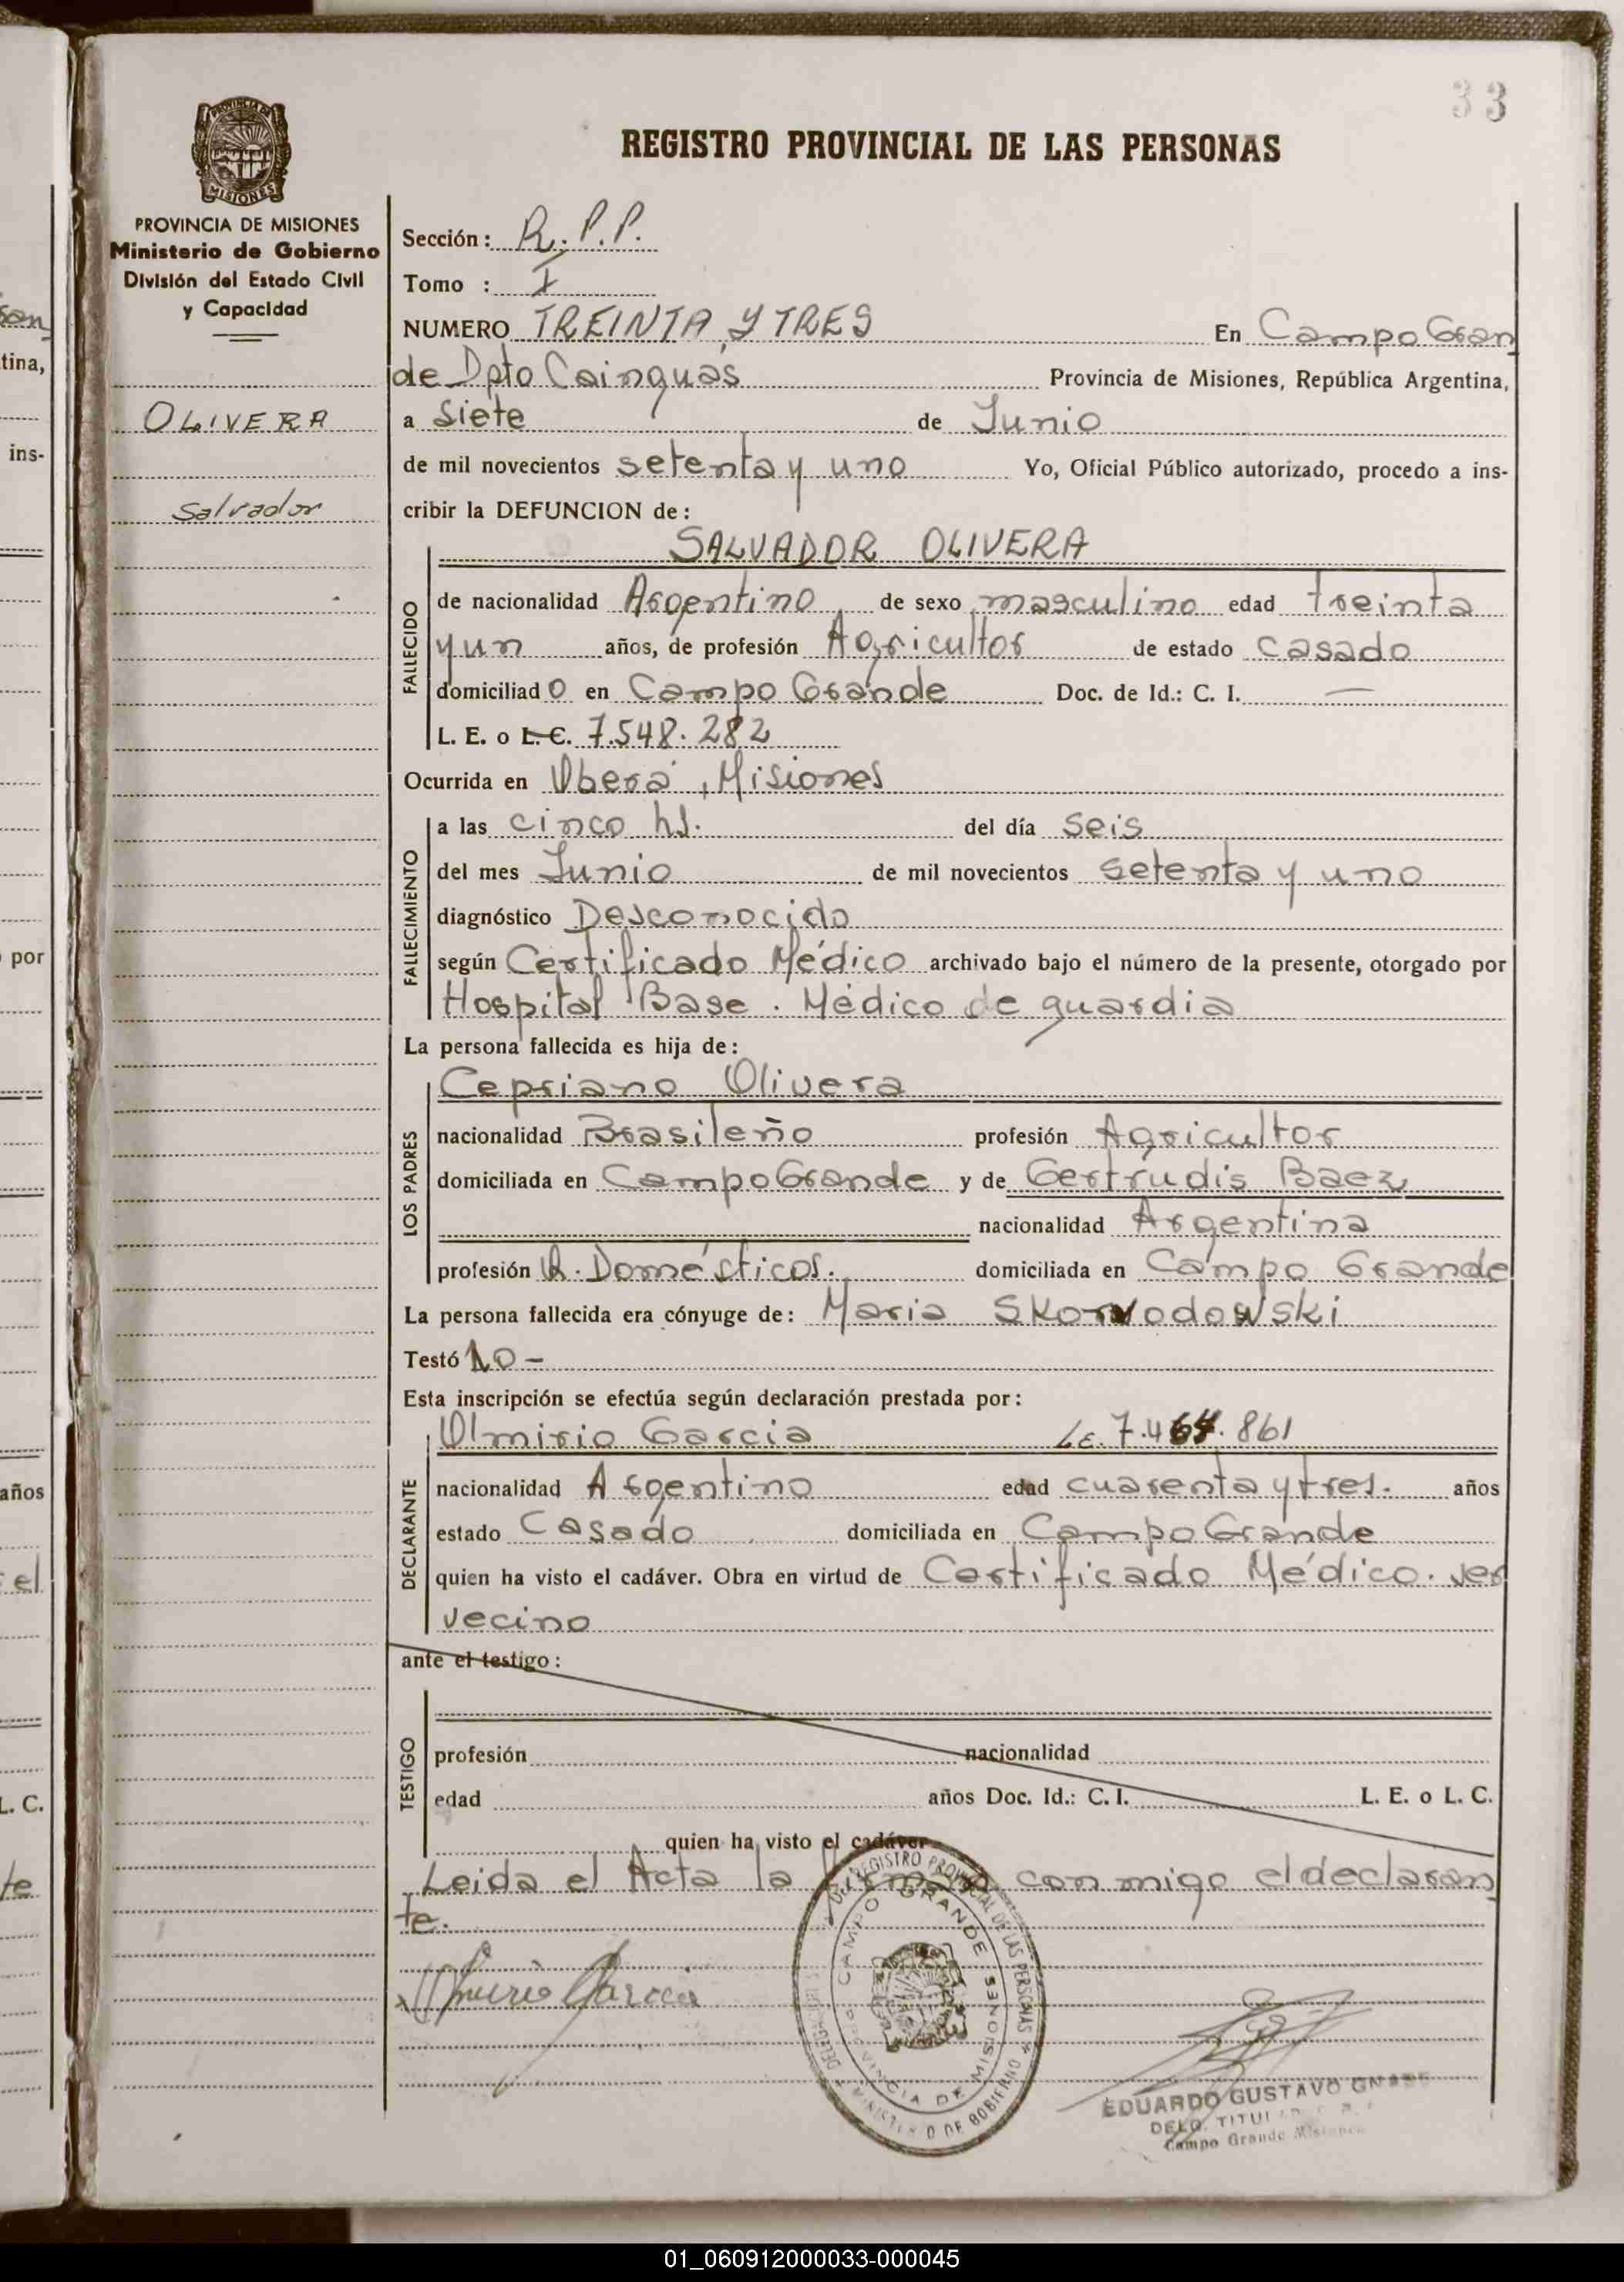 33
REGISTRO PROVINCIAL DE LAS PERSONAS
PROVINCIA DE
MISIONES
PROVINCIA DE MISIONES
Ministerio de Gobierno
División del Estado Civil
y Capacidad
OLIVERA
Salvador
Sección: R.P.P.
Tomo : I
NUMERO TREINTA Y TRES En Campo Gran
de Dpto Cainguás Provincia de Misiones, República Argentina,
a siete de Junio
de mil novecientos setenta y uno Yo, Oficial Público autorizado, procedo a ins-
cribir la DEFUNCION de:
SALVADOR OLIVERA
FALLECIDO
de nacionalidad Argentino de sexo masculino edad treinta
y un años, de profesión Agricultor de estado casado
domiciliado en Campo Grande Doc. de Id.: C. I. —
L. E. o L. C. 7.548.282
Ocurrida en Oberá, Misiones
FALLECIMIENTO
a las cinco hs. del día seis
del mes Junio de mil novecientos setenta y uno
diagnóstico Desconocido
según Certificado Médico archivado bajo el número de la presente, otorgado por
Hospital Base. Médico de guardia
La persona fallecida es hija de:
LOS PADRES
Cepriano Olivera
nacionalidad Brasileño profesión Agricultor
domiciliada en Campo Grande y de Gertrudis Baez
nacionalidad Argentina
profesión Q. Domésticos. domiciliada en Campo Grande
La persona fallecida era cónyuge de: Maria Skorvodowski
Testó no -
Esta inscripción se efectúa según declaración prestada por:
DECLARANTE
Olmirio Garcia LE. 7.464.861
nacionalidad Argentino edad cuarenta y tres. años
estado Casado domiciliada en Campo Grande
quien ha visto el cadáver. Obra en virtud de Certificado Médico. ser
vecino
ante el testigo:
TESTIGO
profesión nacionalidad
edad años Doc. Id.: C. I. L. E. o L. C.
quien ha visto el cadáver
Leida el Acta la firma con migo el declaran
te.
Olmirio Garcia
REGISTRO PROVINCIAL DE LAS PERSONAS
MINISTERIO DE GOBIERNO
CAMPO GRANDE
PROVINCIA DE MISIONES
EDUARDO GUSTAVO
DELG. TITU
Campo Grande Misiones
san
tina,
ins-
por
años
el
L. C.
te
01_060912000033-000045